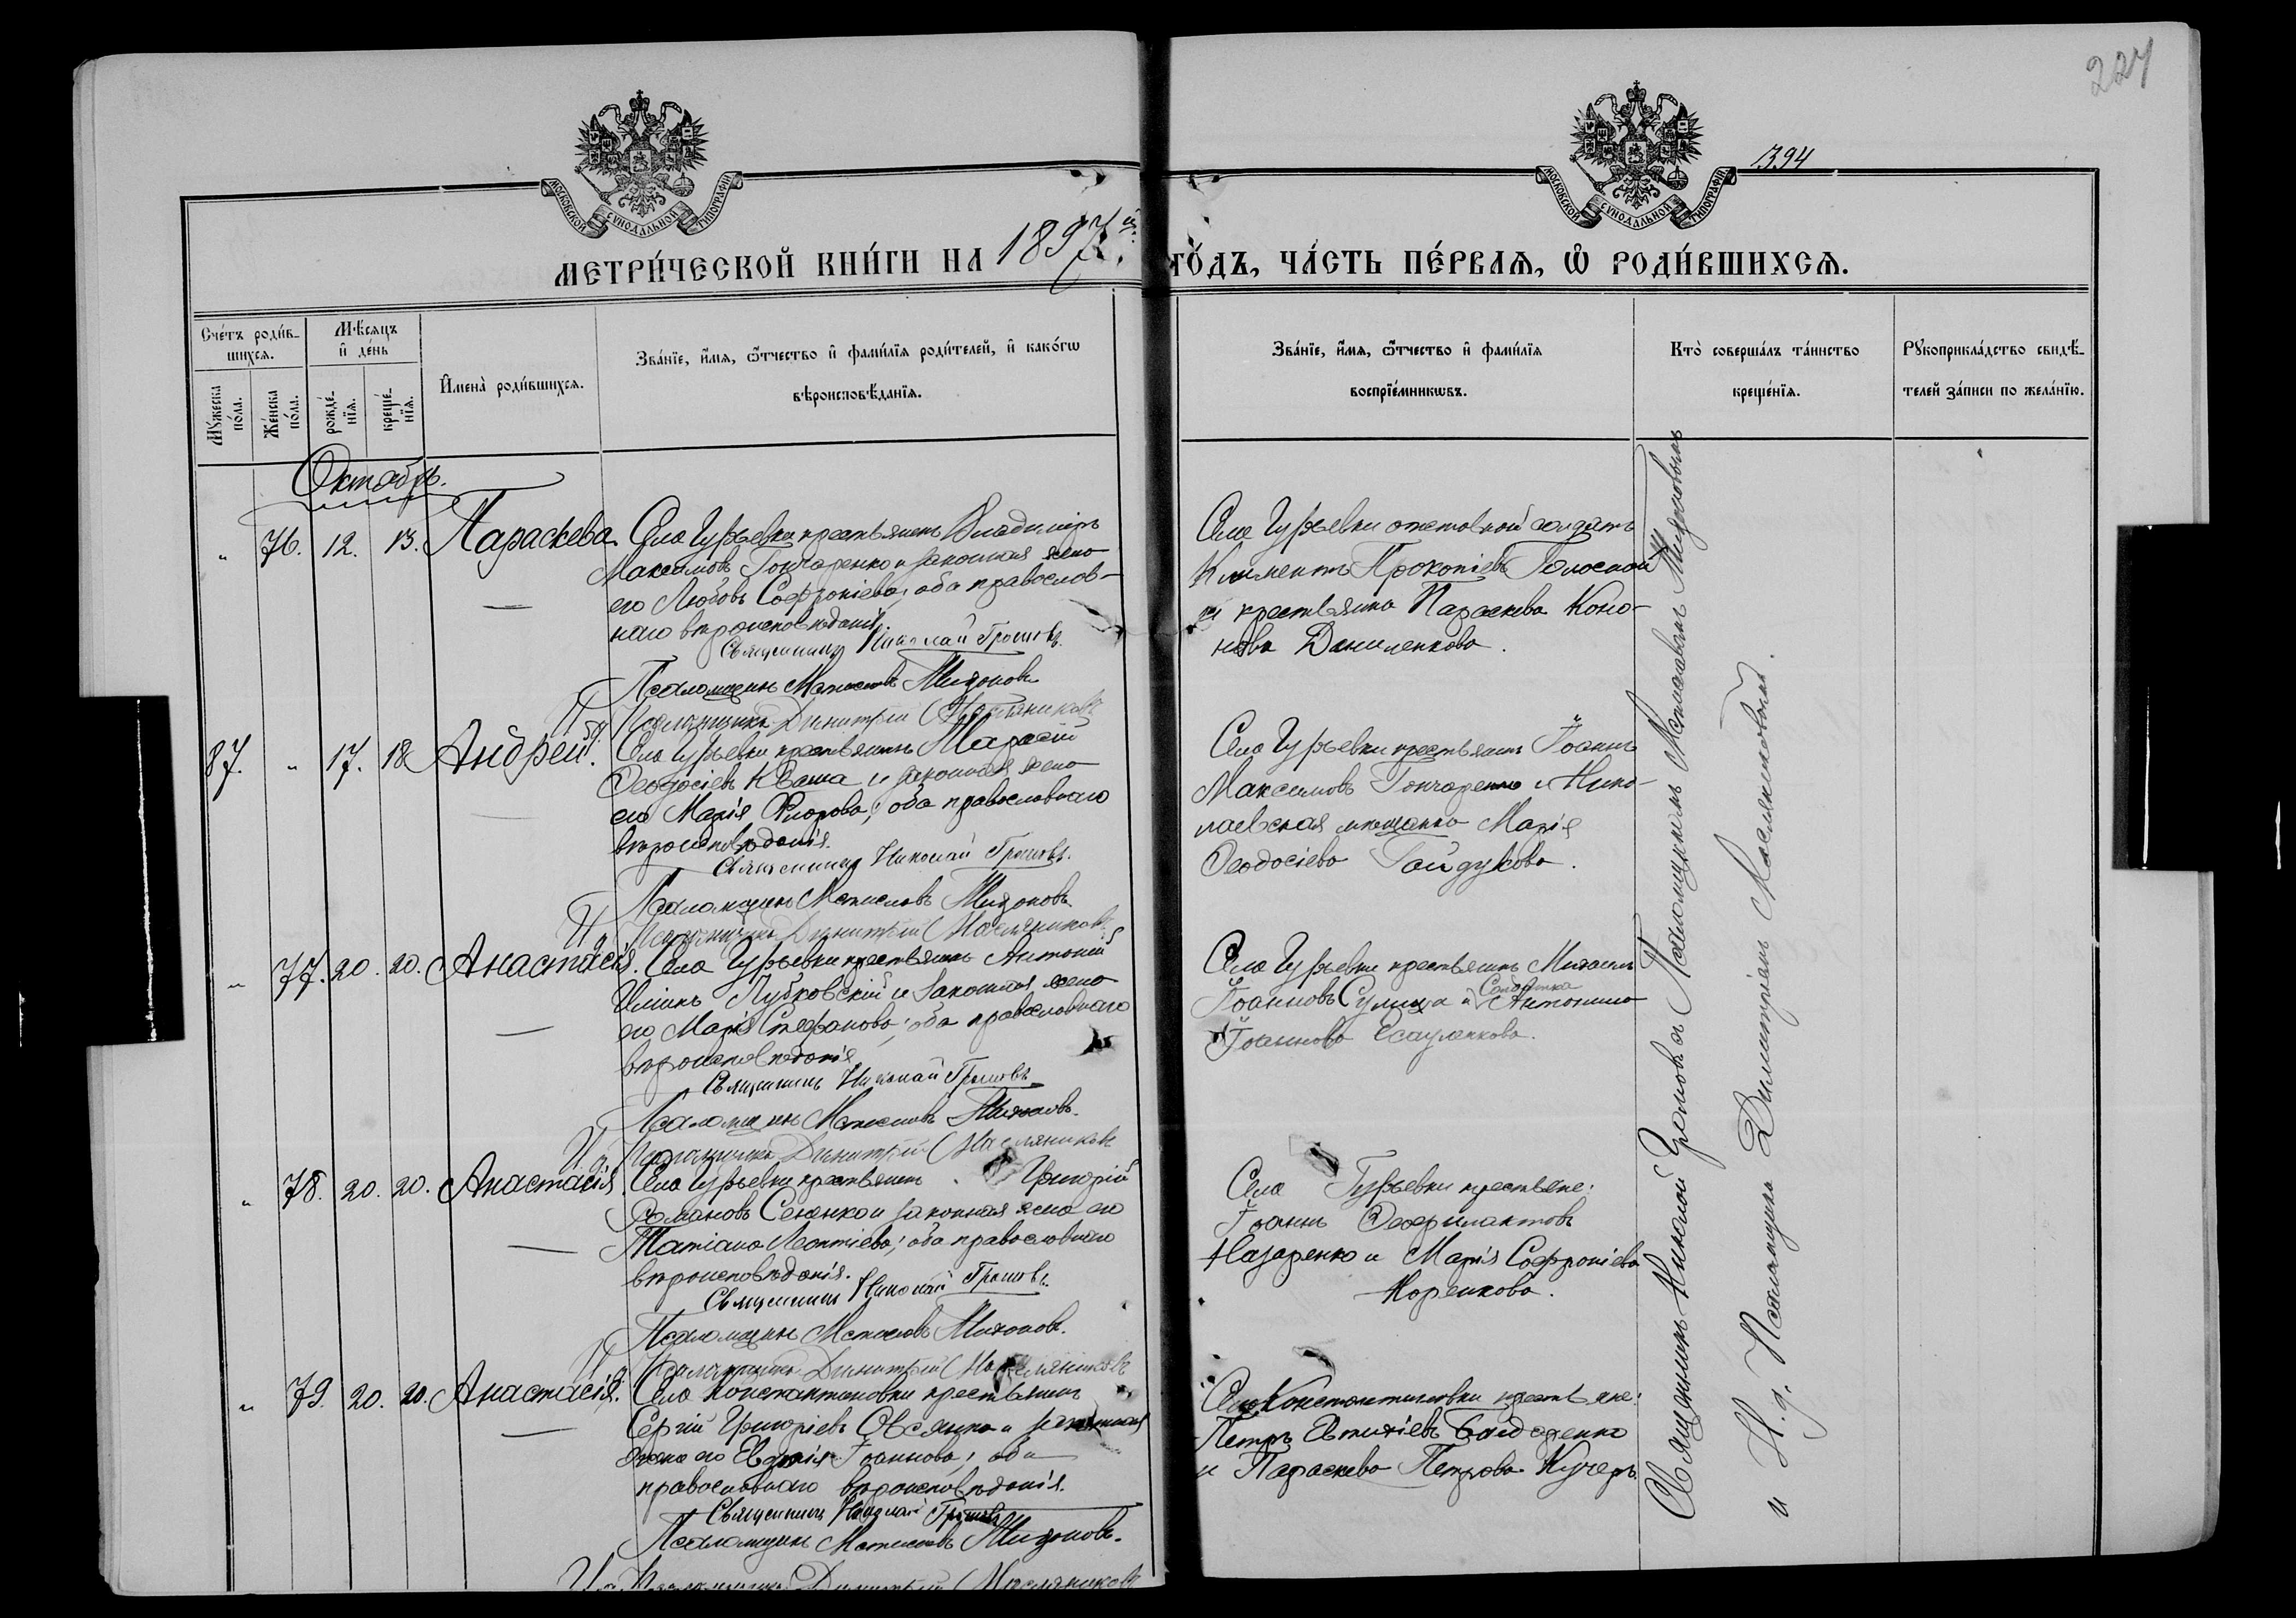 227
394
МОСКОВСКОЙ СѴНОДАЛЬНОЙ ТИПОГРАФІИ
МОСКОВСКОЙ СѴНОДАЛЬНОЙ ТИПОГРАФІИ
МЕТРИ́ЧЕСКОЙ КНИ́ГИ НА 1897й
ГО́ДЪ, ЧА́СТЬ ПЕ́РВАѦ, Ѽ РОДИ́ВШИХСѦ.
Сче́тъ роди́в-
шихсѧ.
Мꙋ́жеска по́ла.
Же́нска по́ла.
Мѣ́сѧцъ
и҆ де́нь
рожде́-
нїѧ.
креще́-
нїѧ.
И҆мена̀ роди́вшихсѧ.
Зва́нїе, и҆́мѧ, ѻ҆́тчество и҆ фами́лїѧ роди́телей, и҆ како́гѡ
вѣроисповѣ́данїѧ.
Зва́нїе, и҆́мѧ, ѻ҆́тчество и҆ фами́лїѧ
воспрїе́мникѡвъ.
Кто̀ соверша́лъ та́инство
креще́нїѧ.
Рꙋкоприкла́дство свидѣ́-
телей за́писи по жела́нїю.
Октябрь.
„ 76. 12. 13. Параскева
Села Гурьевки крестьянинъ Владиміръ
Максимовъ Гончаренко и законная жена
его Любовь Софроніева; оба православ-
наго вѣроисповѣданія.
Священникъ Николай Громовъ.
Псаломщикъ Мстиславъ Мизоновъ
И. д. Псаломщика Димитрій Масляниковъ
Села Гурьевки отставной солдатъ
Климентъ Прокопіевъ Голосной
и крестьянка Параскева Коно-
нова Даниленкова.
87. „ 17. 18 Андрей.
Села Гурьевки крестьянинъ Тарасій
Ѳеодосіевъ Кваша и законная жена
его Марія Флорова; оба православнаго
вѣроисповѣданія.
Священникъ Николай Громовъ.
Псаломщикъ Мстиславъ Мизоновъ
И. д. Псаломщика Димитрій Масляниковъ
Села Гурьевки крестьянинъ Іоаннъ
Максимовъ Гончаренко и Нико-
лаевская мѣщанка Марія
Ѳеодосіева Гайдукова.
„ 77. 20. 20. Анастасія.
Села Гурьевки крестьянинъ Антоній
Ильинъ Лубковскій и законная жена
его Марія Стефанова; оба православнаго
вѣроисповѣданія
Священникъ Николай Громовъ
Псаломщикъ Мстиславъ Мизоновъ.
И. д. Псаломщика Димитрій Масляниковъ
Села Гурьевки крестьянинъ Михаилъ
Іоанновъ Сулима и Антонина
Іоаннова Есауленкова.
„ 78. 20. 20. Анастасія
Села Гурьевки крестьянинъ Григорій
Романовъ Сененко и законная жена его
Татіана Леонтіева; оба православнаго
вѣроисповѣданія.
Священникъ Николай Громовъ.
Псаломщикъ Мстиславъ Мизоновъ.
И. д. Псаломщика Димитрій Масляниковъ
Села Гурьевки крестьяне:
Іоаннъ Ѳеофилактовъ
Назаренко и Марія Софроніева
Коренкова.
„ 79. 20. 20. Анастасія.
Села Константиновки крестьянинъ
Сергій Григоріевъ Овсянко и законная
жена его Евдокія Іоаннова; оба
православнаго вѣроисповѣданія.
Священникъ Николай Громовъ
Псаломщикъ Мстиславъ Мизоновъ.
И. д. Псаломщика Димитрій Масляниковъ
Села Константиновки крестьяне:
Петръ Евтихіевъ Бондаренко
и Параскева Петрова Кучеръ
Священникъ Николай Громовъ съ Псаломщикомъ Мстиславомъ Мизоновымъ
и И. д. Псаломщика Димитріемъ Масляниковымъ.